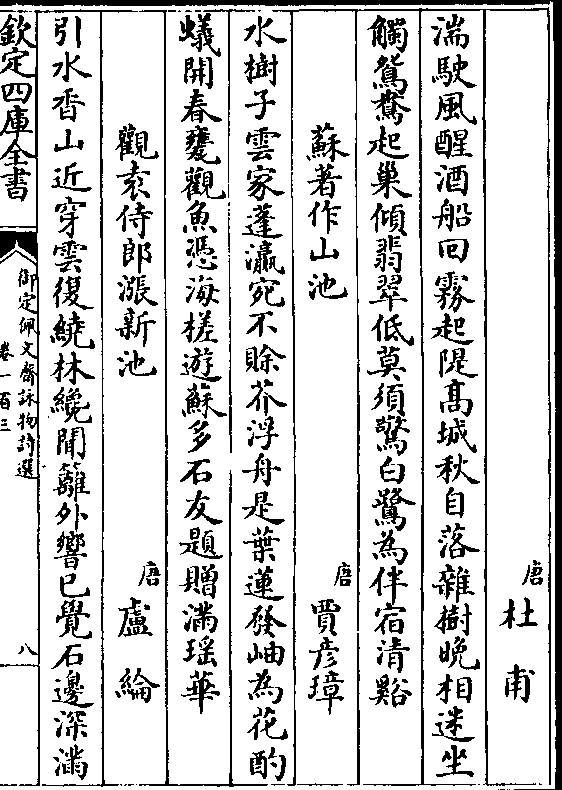 唐 杜甫
湍駛風醒酒船回霧起隄髙城秋自落雜樹晚相迷坐
觸鴛鴦起巢傾翡翠低莫須驚白鷺為伴宿清谿
蘇著作山池
唐 賈彥璋
水樹子雲家蓬瀛宛不賖芥浮舟是葉蓮發岫為花酌
蟻開春甕觀魚憑海槎遊蘇多石友題贈滿瑶華
觀袁侍郎漲新池
唐 盧綸
引水香山近穿雲復繞林纔聞籬外響已覺石邊深滿
欽定四庫全書
御定佩文齋詠物詩選
卷一百三
八